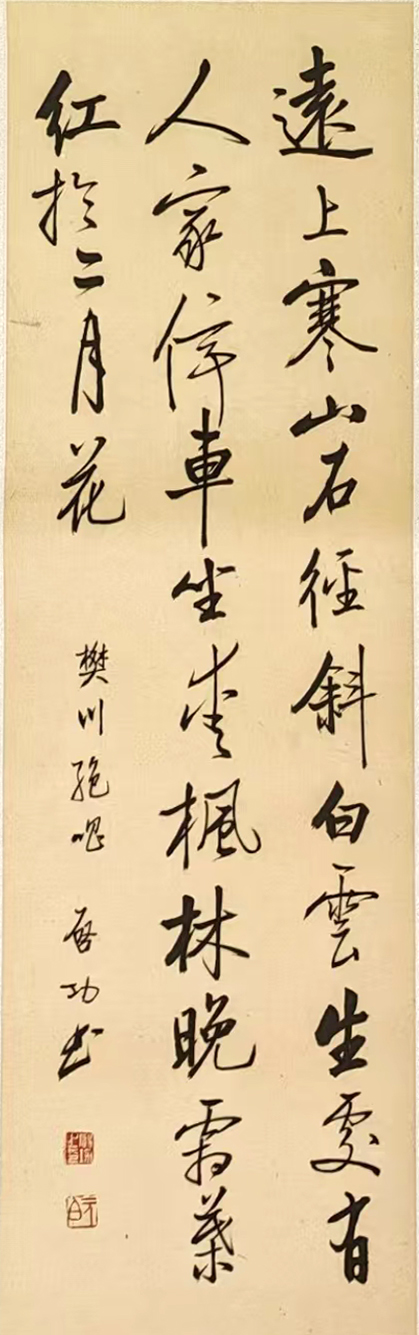 遠上寒山石徑斜白雲生處有
人家停車坐愛楓林晚霜葉
紅於二月花
樊川絶唱 啓功書